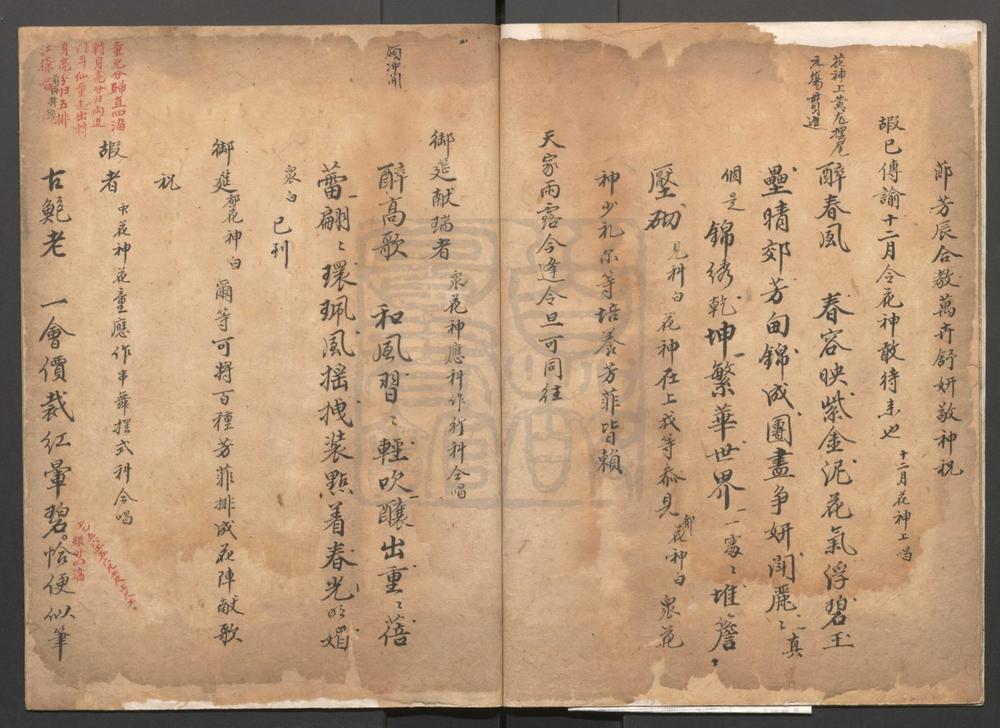 節芳辰合教萬卉舒妍敬神祝
嘏已傳諭十二月令花神敢待來也 十二月花神上唱
花神上黃尨擺尾
元場貫進
醉春風 春容映紫金泥花氣浮碧玉
壘晴郊芳甸錦成團盡爭妍鬥麗〻真
個是錦綉乾坤繁華世界一處〻堆簷〻
壓砌 見科白 花神在上我等參見 都花神白 衆花
神少礼尔等培養芳菲皆賴
天家雨露今逢令旦可同往
御筵獻瑞者 衆花神應科作行科仝唱
頭冲開
醉高歌 和風習〻輕吹釀出重〻蓓
蕾翩〻環珮風搖拽裝點着春光明媚
衆白 已到
御筵 都花神白 爾等可將百種芳菲排成花陣献歌
祝
嘏者 衆花神花童應作串舞擺式科仝唱
古鮑老 一會價裁紅暈碧恰便似筆
童兒分歸直四溜
轉身亮分归兩邊